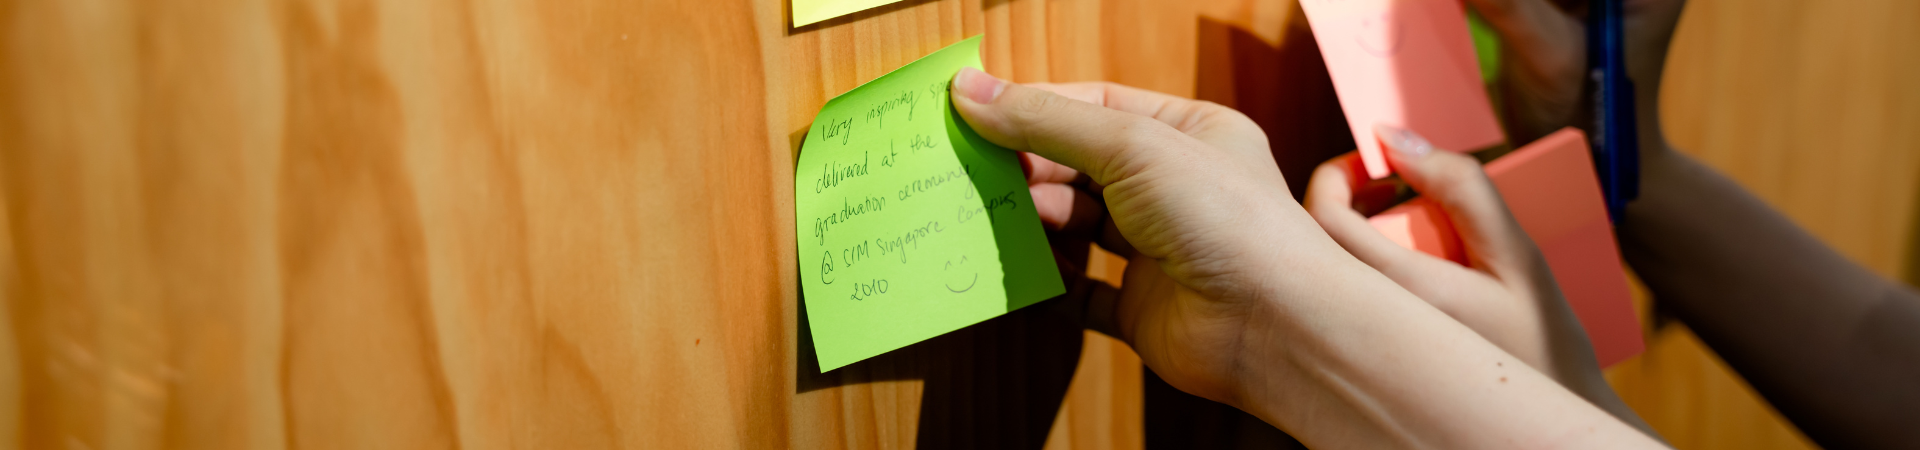 Very inspiring
delivered at the
graduation ceremony
@ SIM Singapore Campus
2010